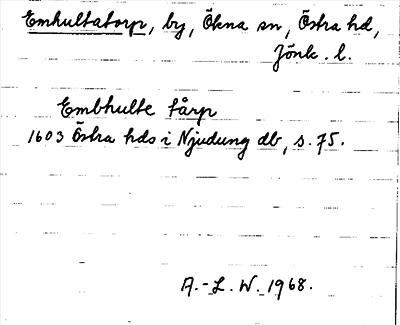 Emhultatorp, by, Ökna sn, Östra hd,
Jönk. l.
Embhulte tårp
1603 Östra hds i Njudung db, s. 75.
A.-L. W. 1968.